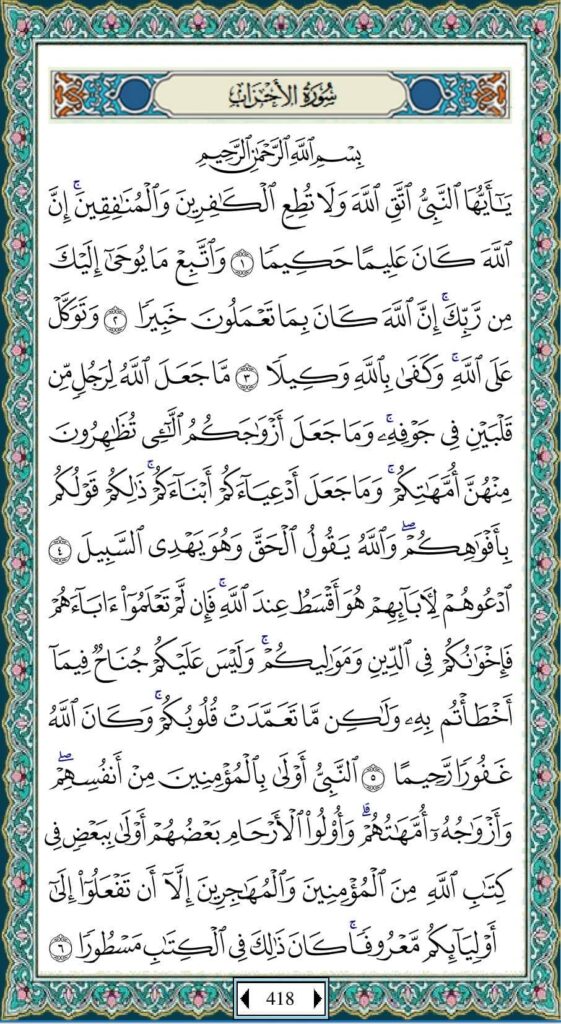 سُورَةُ الأَحْزَابِ
بِسْمِ ٱللَّهِ ٱلرَّحْمَٰنِ ٱلرَّحِيمِ
يَـٰٓأَيُّهَا ٱلنَّبِىُّ ٱتَّقِ ٱللَّهَ وَلَا تُطِعِ ٱلْكَـٰفِرِينَ وَٱلْمُنَـٰفِقِينَ ۚ إِنَّ
ٱللَّهَ كَانَ عَلِيمًا حَكِيمًا ١ وَٱتَّبِعْ مَا يُوحَىٰٓ إِلَيْكَ
مِن رَّبِّكَ ۚ إِنَّ ٱللَّهَ كَانَ بِمَا تَعْمَلُونَ خَبِيرًا ٢ وَتَوَكَّلْ
عَلَى ٱللَّهِ ۚ وَكَفَىٰ بِٱللَّهِ وَكِيلًا ٣ مَّا جَعَلَ ٱللَّهُ لِرَجُلٍ مِّن
قَلْبَيْنِ فِى جَوْفِهِۦ ۚ وَمَا جَعَلَ أَزْوَٰجَكُمُ ٱلَّـٰٓـِٔى تُظَـٰهِرُونَ
مِنْهُنَّ أُمَّهَـٰتِكُمْ ۚ وَمَا جَعَلَ أَدْعِيَآءَكُمْ أَبْنَآءَكُمْ ۚ ذَٰلِكُمْ قَوْلُكُم
بِأَفْوَٰهِكُمْ ۖ وَٱللَّهُ يَقُولُ ٱلْحَقَّ وَهُوَ يَهْدِى ٱلسَّبِيلَ ٤
ٱدْعُوهُمْ لِـَٔابَآئِهِمْ هُوَ أَقْسَطُ عِندَ ٱللَّهِ ۚ فَإِن لَّمْ تَعْلَمُوٓا۟ ءَابَآءَهُمْ
فَإِخْوَٰنُكُمْ فِى ٱلدِّينِ وَمَوَٰلِيكُمْ ۚ وَلَيْسَ عَلَيْكُمْ جُنَاحٌ فِيمَآ
أَخْطَأْتُم بِهِۦ وَلَـٰكِن مَّا تَعَمَّدَتْ قُلُوبُكُمْ ۚ وَكَانَ ٱللَّهُ
غَفُورًا رَّحِيمًا ٥ ٱلنَّبِىُّ أَوْلَىٰ بِٱلْمُؤْمِنِينَ مِنْ أَنفُسِهِمْ ۖ
وَأَزْوَٰجُهُۥٓ أُمَّهَـٰتُهُمْ ۗ وَأُو۟لُوا۟ ٱلْأَرْحَامِ بَعْضُهُمْ أَوْلَىٰ بِبَعْضٍ فِى
كِتَـٰبِ ٱللَّهِ مِنَ ٱلْمُؤْمِنِينَ وَٱلْمُهَـٰجِرِينَ إِلَّآ أَن تَفْعَلُوٓا۟ إِلَىٰٓ
أَوْلِيَآئِكُم مَّعْرُوفًا ۚ كَانَ ذَٰلِكَ فِى ٱلْكِتَـٰبِ مَسْطُورًا ٦
418